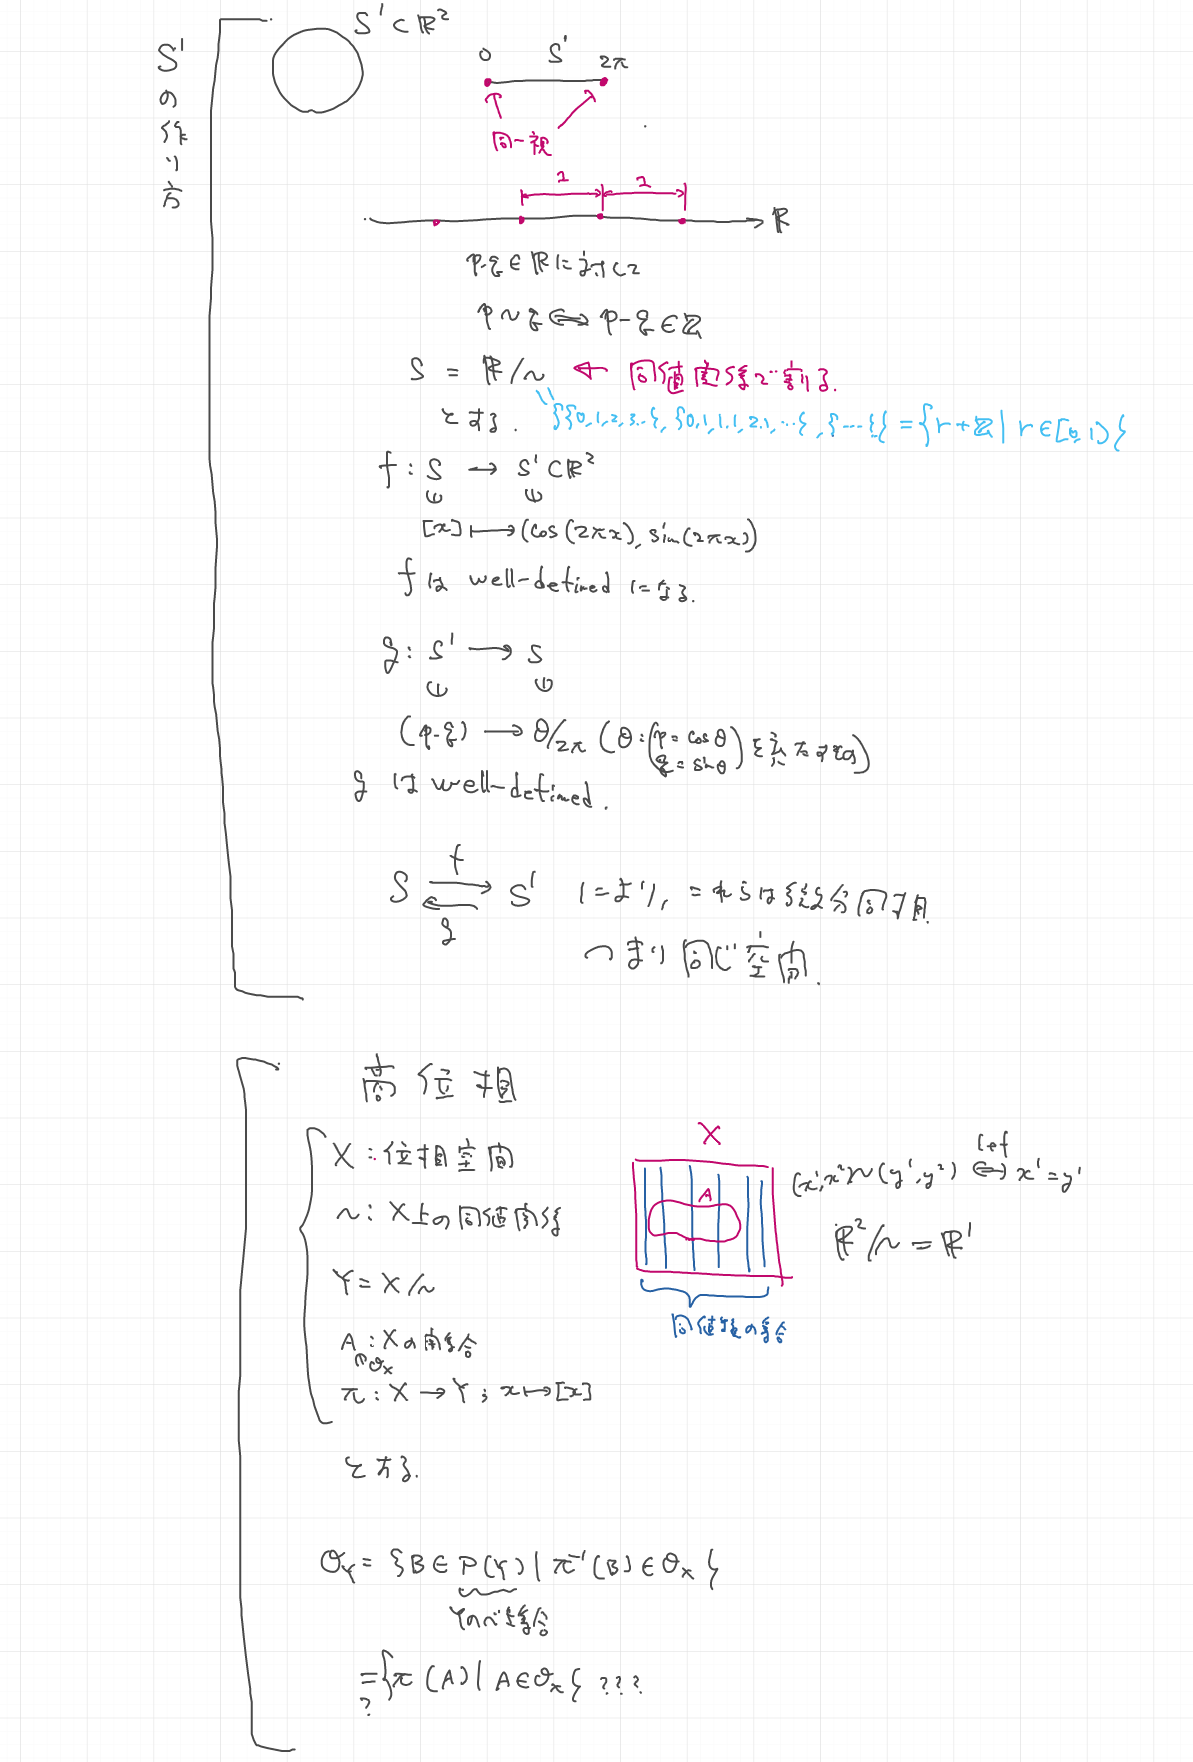 S¹の作り方
S¹ ⊂ ℝ²
0 S¹ 2π
同一視
1 1
ℝ
p, q ∈ ℝ に対して
p ~ q ⟺ p - q ∈ ℤ
S = ℝ/~ ← 同値関係で割る.
とする. {{0,1,2,3..}, {0,1,1.1,2.1,...}, {...}} = {r + ℤ | r ∈ [0,1)}
f : S → S¹ ⊂ ℝ²
[x] ⟼ (cos(2πx), sin(2πx))
f は well-defined になる.
g : S¹ → S
(p, q) → θ/2π (θ : (p = cosθ
q = sinθ) をみたすもの)
g は well-defined.
S f g S¹ により, これらは微分同相
つまり同じ空間.
商位相
X : 位相空間
~ : X上の同値関係
Y = X/~
A : Xの開集合
∈ 𝒪x
π : X → Y ; x ⟼ [x]
とする.
X
A
同値類の集合
(x¹, x²) ~ (y¹, y²) def ⟺ x¹ = y¹
ℝ²/~ = ℝ¹
𝒪Y = {B ∈ P(Y) | π⁻¹(B) ∈ 𝒪x}
Yのべき集合
= {π(A) | A ∈ 𝒪x} ???
?